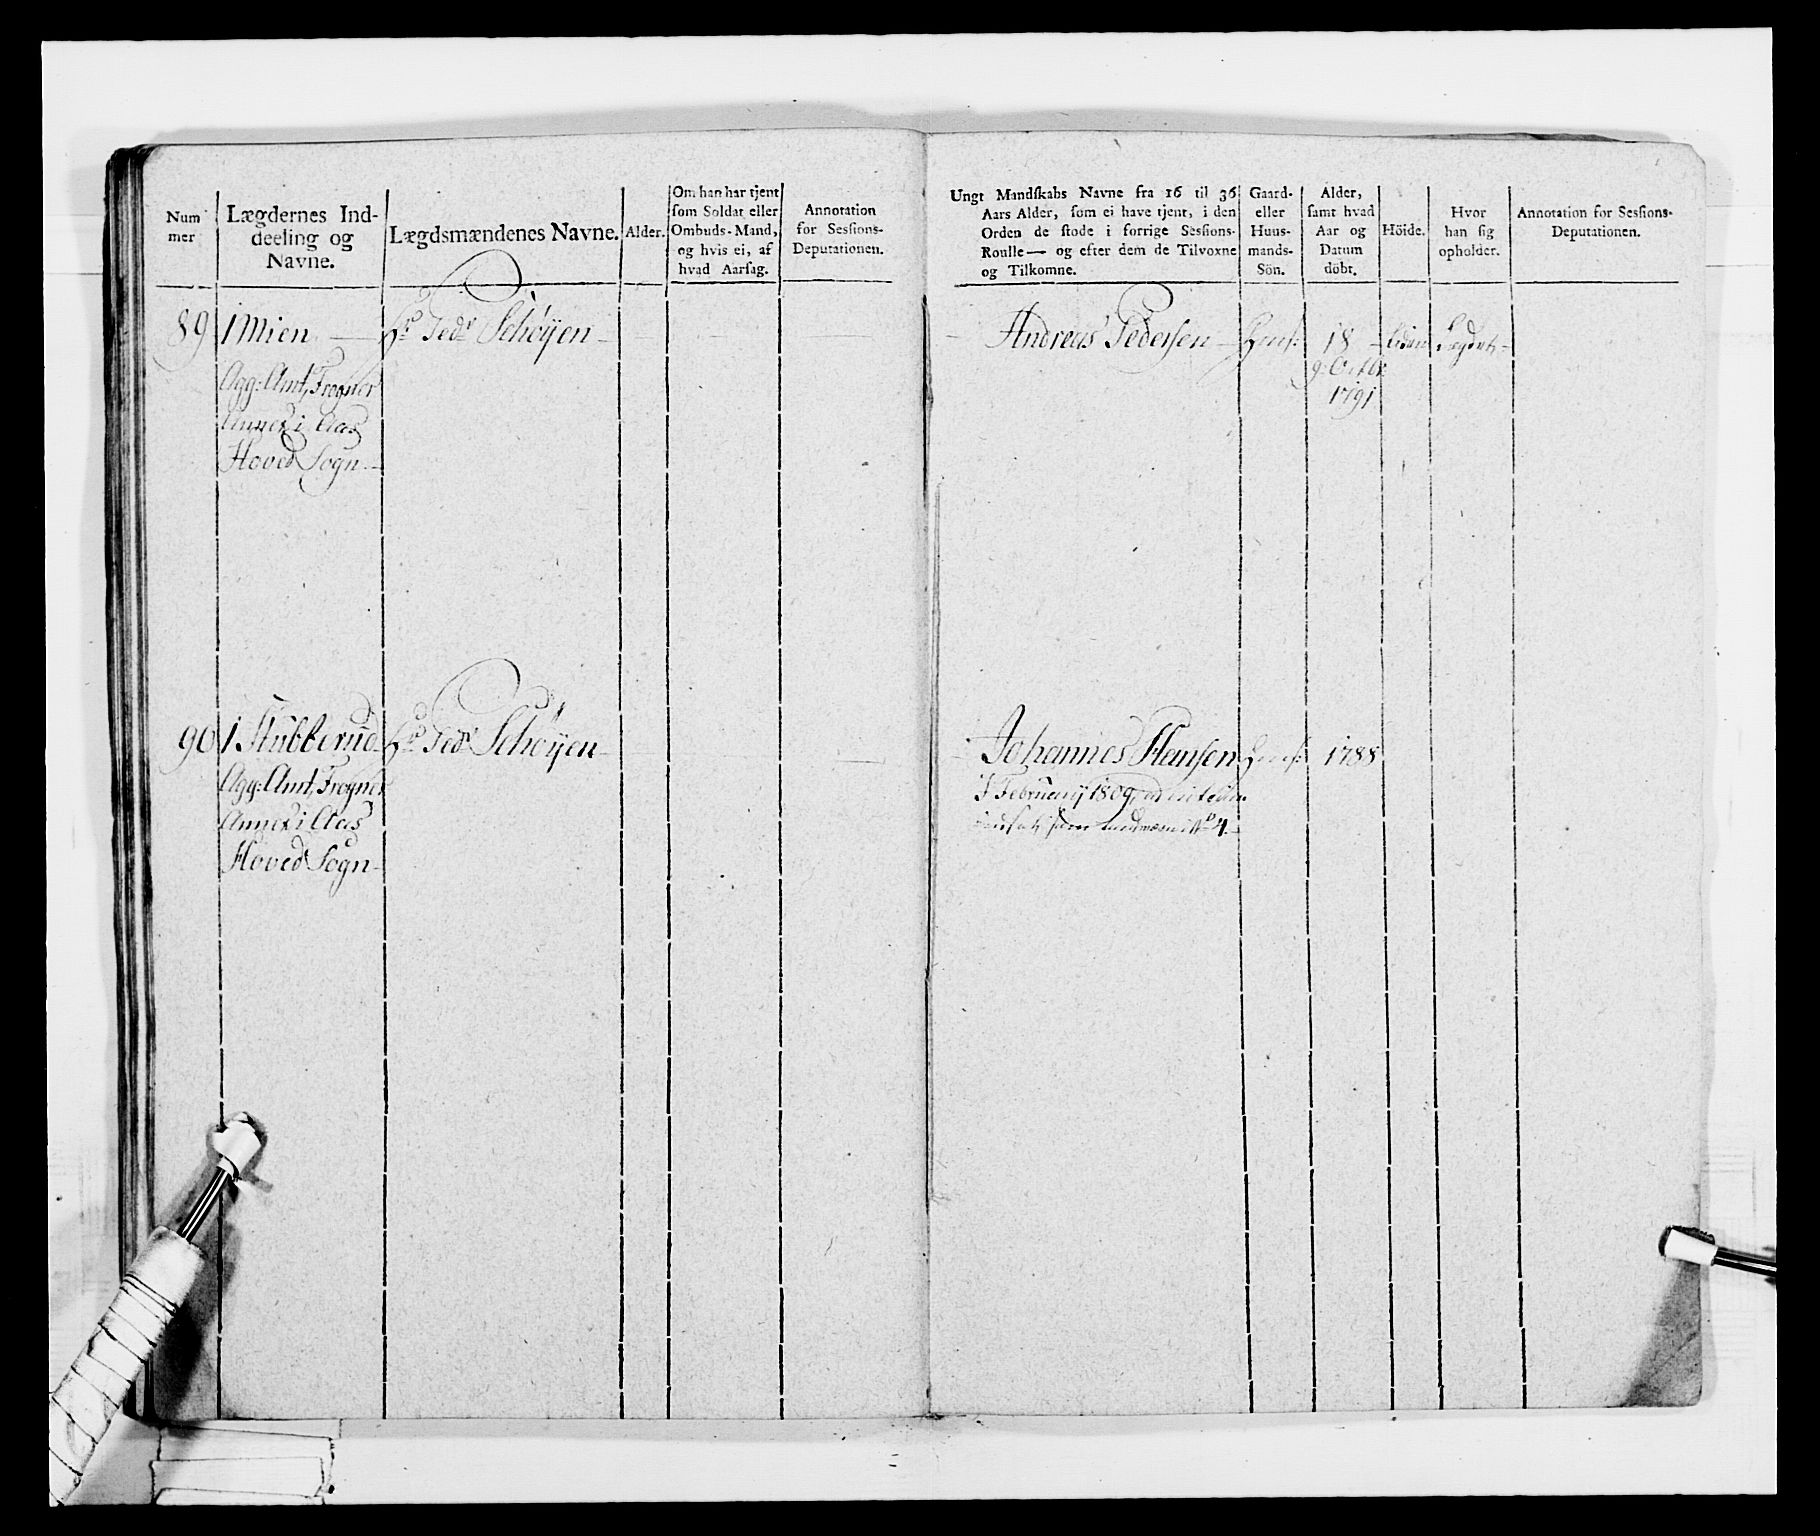 Num
mer
Lægdernes Ind-
deeling og
Navne.
Lægdsmændenes Navne.
Alder.
Om han har tjent
som Soldat eller
Ombuds-Mand,
og hvis ei, af
hvad Aarsag.
Annotation
for Sessions-
Deputationen.
89 1 Mien — Hr. Peder Schöyen
Agg: Amt, Frogner
Annex i Aas
Hoved Sogn
90 1 Stubberud Hr. Peder Schöyen
Agg: Amt, Frogner
Annex i Aas
Hoved Sogn
Ungt Mandskabs Navne fra 16 til 36
Aars Alder, som ei have tjent, i den
Orden de stode i forrige Sessions-
Roulle — og efter dem de Tilvoxne
og Tilkomne.
Gaard-
eller
Huus-
mands-
Sön.
Alder,
samt hvad
Aar og
Datum
döbt.
Höide.
Hvor
han sig
opholder.
Annotation for Sessions-
Deputationen.
Andreas Pedersen 18
9: Octbr
1791
Johannes Hansen 1788
I February 1809
4.